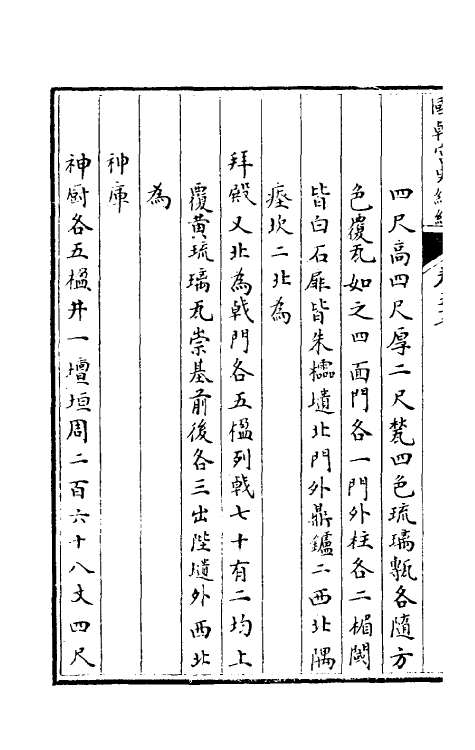 國朝宮史續編
四尺高四尺厚二尺甃四色琉璃甎各隨方
色覆瓦如之四面門各一門外柱各二楣閾
皆白石扉皆朱櫺壝北門外鼎鑪二西北隅
瘞坎二北為
拜殿又北為戟門各五楹列戟七十有二均上
覆黃琉璃瓦崇基前後各三出陛壝外西北
為
神庫
神廚各五楹井一壇垣周二百六十八丈四尺